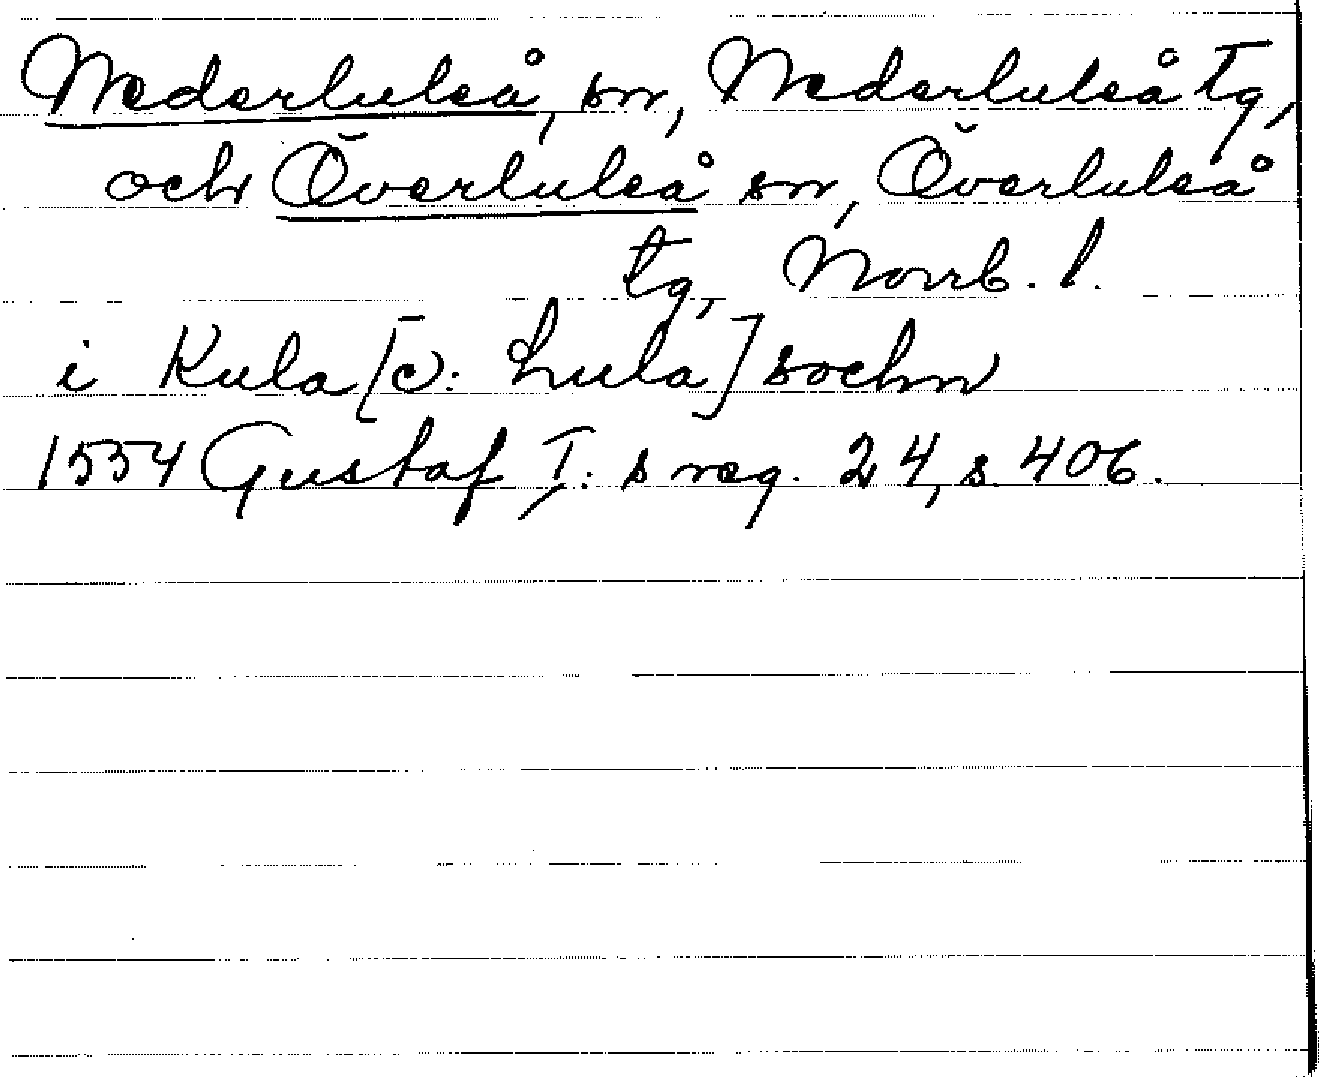 Nederluleå, sn, Nederluleå tg,
och Överluleå sn, Överluleå
tg, Norrb. l.
i Kula [ɔ: Lula] sochn
1554 Gustaf I:s reg. 24, s. 406.